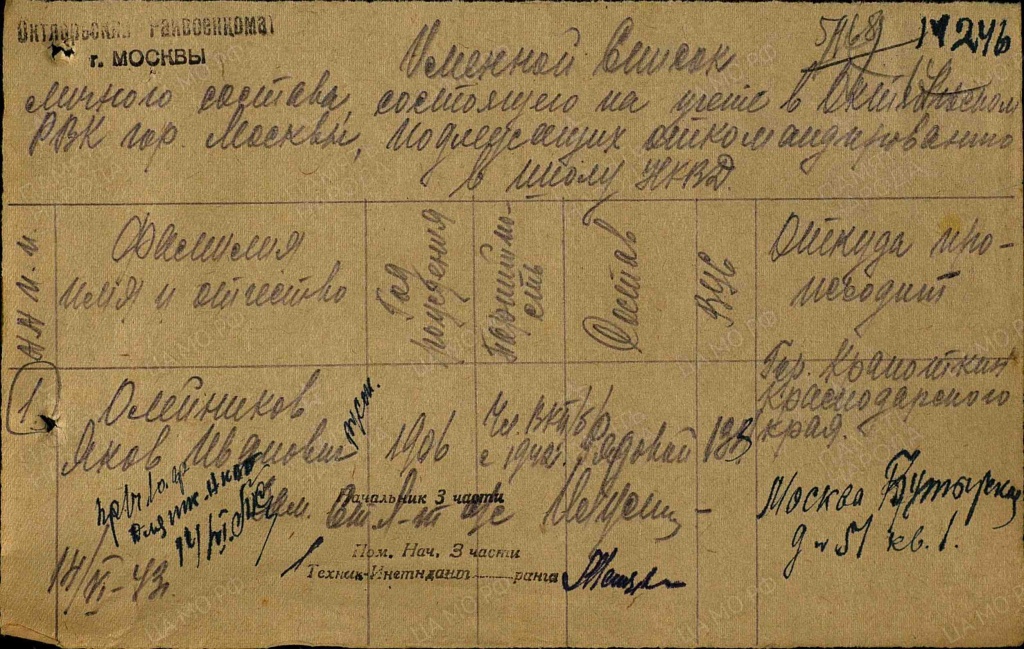 Октябрьский Райвоенкомат
г. МОСКВЫ
14 246
Именной Список
личного состава, состоящего на учете в Октябрьском
РВК гор. Москвы, подлежащих откомандированию
в школу НКВД.
Фамилия имя и отчество
Год рождения
Партийность
Состав
ВУС
Откуда происходит
1
Олейников
Яков Иванович
русск.
1906
Чл. ВКП/б/
с 1942г.
Рядовой
133
Гор. Крапоткин
Краснодарского
края.
Москва Бутырская
д № 51 кв. 1.
Начальник 3 части
Ст. Л-т
Пом. Нач. 3 части
Техник-Интендант ранга
14/VI-43г.